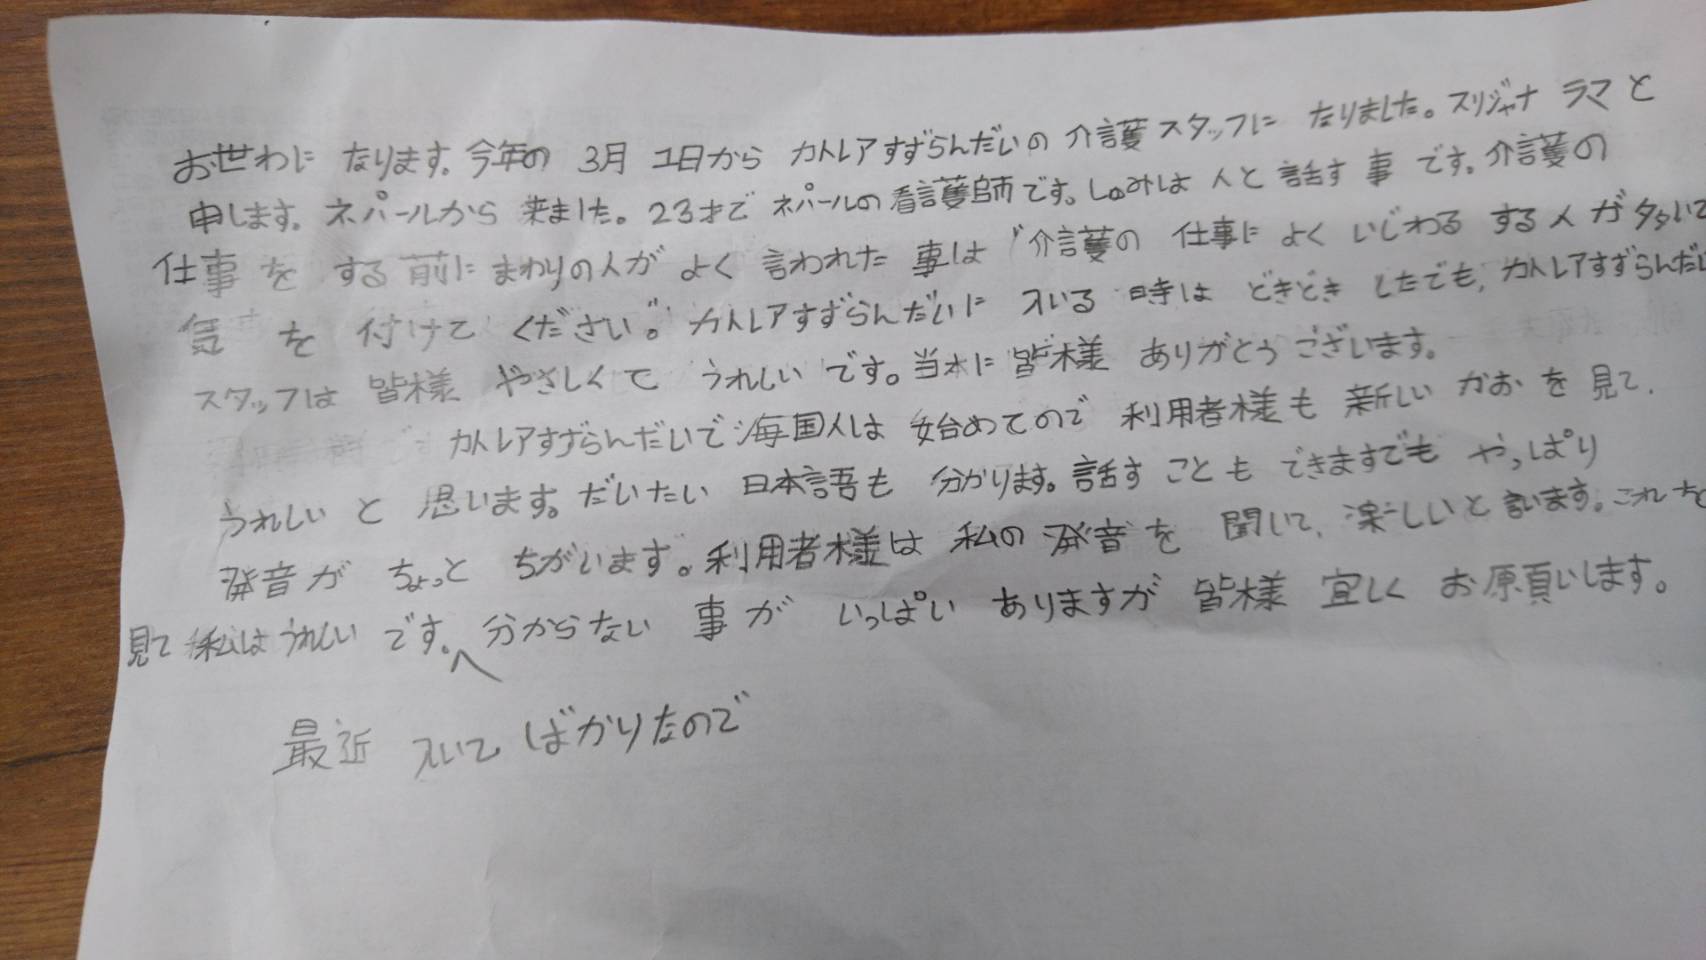 お世わに なります。今年の 3月 1日から カトレアすずらんだいの 介護スタッフに なりました。スリジャナ ラマと
申します。ネパールから 来ました。23才で ネパールの看護師です。しゅみは 人と 話す 事 です。介護の
仕事 を する 前に まわりの人が よく 言われた 事は "介護の 仕事に よく いじわる する 人 が 多いで
気 を 付けて ください。" カトレアすずらんだいに 入いる 時は どきどき したでも, カトレアすずらんだい
スタッフは 皆様 やさしくて うれしい です。当本に 皆様 ありがとう ございます。
カトレアすずらんだいで 海国人は 始めてので 利用者様も 新しい かお を 見て,
うれしい と 思います。だいたい 日本語も 分かります。話す ことも できますでも やっぱり
発音が ちょっと ちがいます。利用者様は 私の 発音を 聞いて, 楽しいと 言います。これを
見て 私は うれしい です。分からない 事が いっぱい ありますが 皆様 宜しく お願いします。
最近 入いて ばかりなので